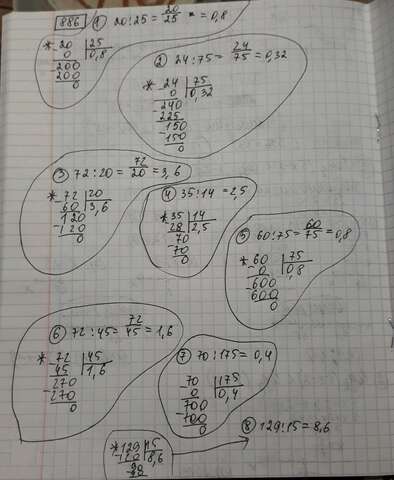 886 1) 20:25 = 20/25 = 0,8
* 20 | 25
0 | 0,8
-200
200
0
2) 24:75 = 24/75 = 0,32
* 24 | 75
0 | 0,32
-240
225
-150
150
0
3) 72:20 = 72/20 = 3,6
* 72 | 20
60 | 3,6
-120
120
0
4) 35:14 = 2,5
* 35 | 14
28 | 2,5
-70
70
0
5) 60:75 = 60/75 = 0,8
* 60 | 75
0 | 0,8
-600
600
0
6) 72:45 = 72/45 = 1,6
* 72 | 45
45 | 1,6
-270
270
0
7) 70:175 = 0,4
-70 | 175
0 | 0,4
-700
700
0
8) 129:15 = 8,6
* 129 | 15
120 | 8,6